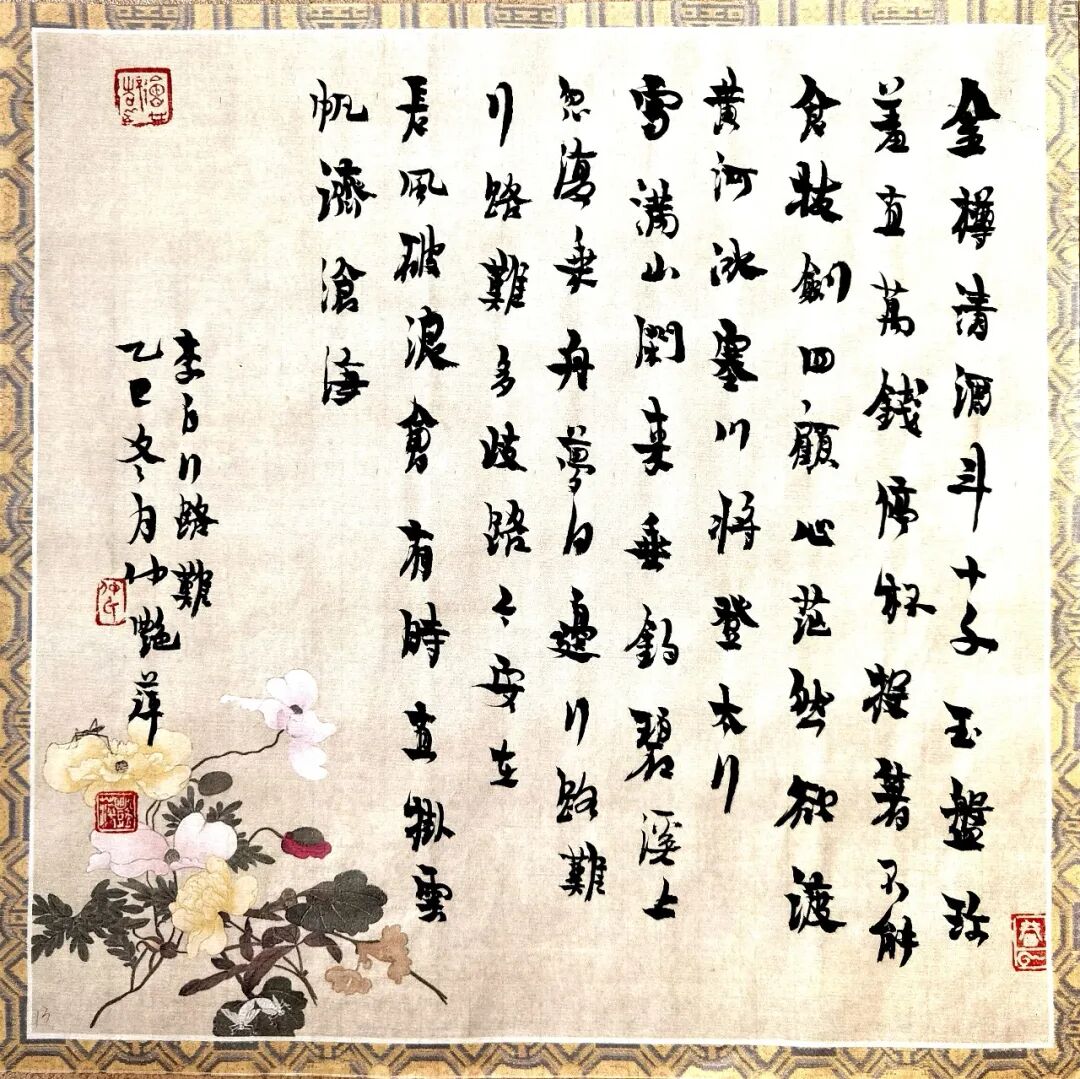 金樽清酒斗十千玉盤珍
羞直萬錢停杯投箸不能
食拔劍四顧心茫然欲渡
黃河冰塞川將登太行
雪滿山閑来垂釣碧溪上
忽復乘舟夢日邊行路難
行路難多歧路々安在
長風破浪會有時直掛雲
帆濟滄海
李白行路難
乙巳冬月仲艷萍
仲氏
13